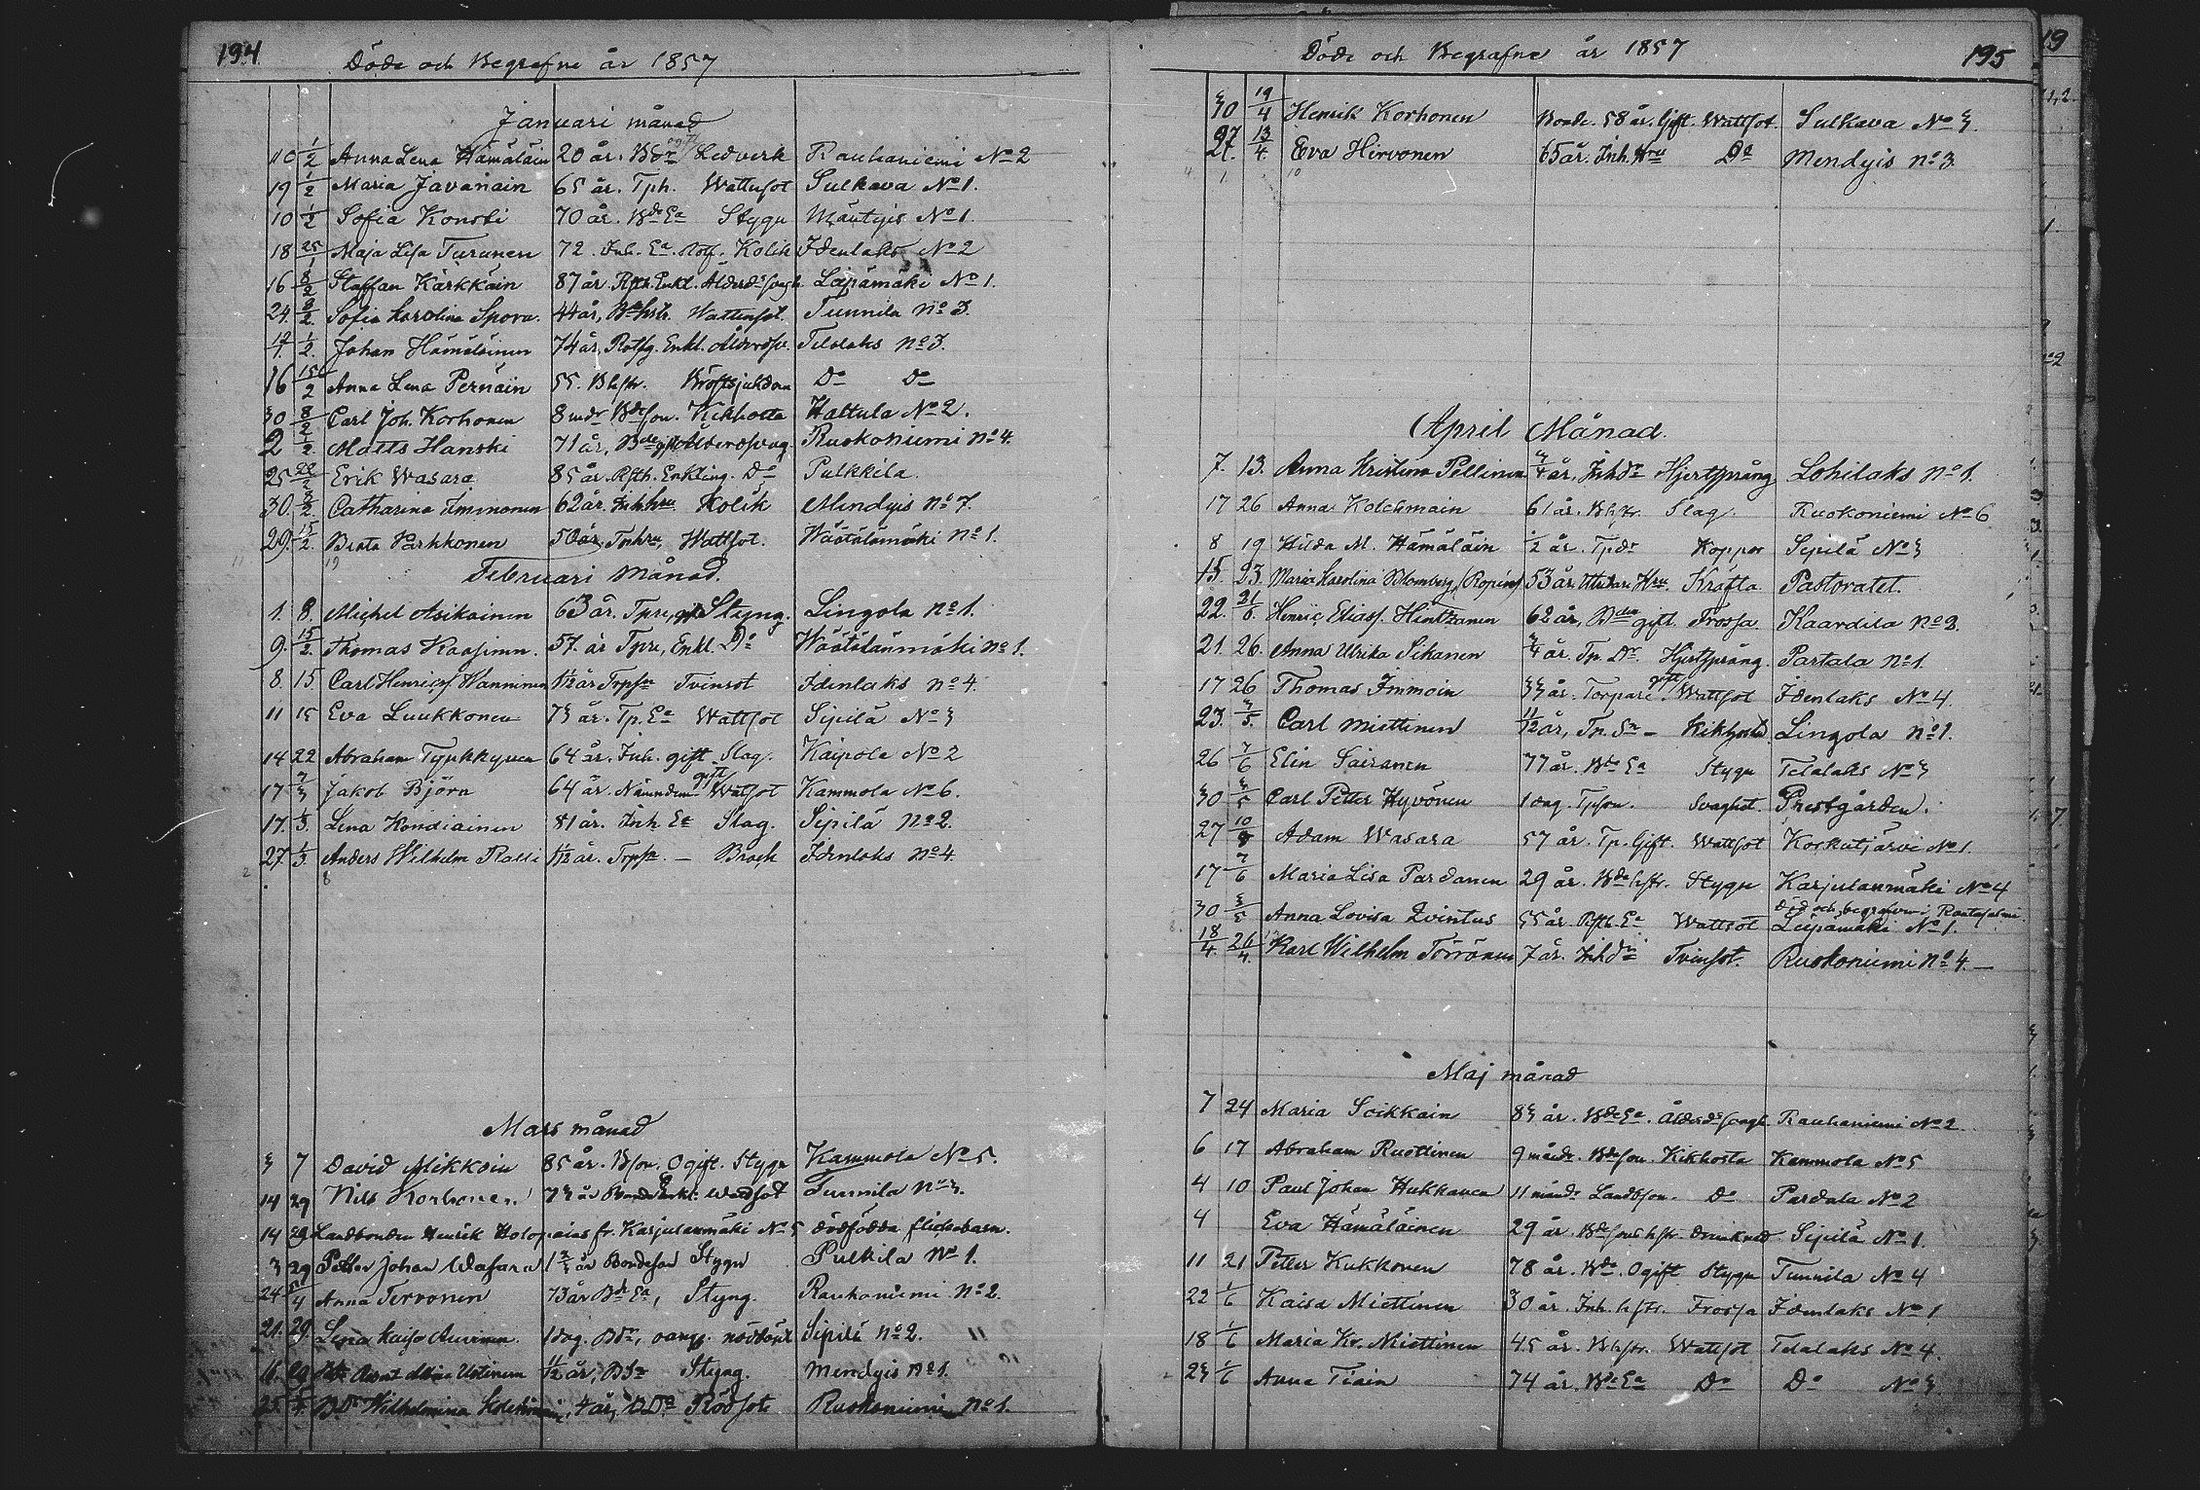 194
Döde och Begrafne år 1857
Januari månad
10 1/2 Anna Lena Hämäläin 20 år. Ledverk Rauhaniemi No 2
19 1/2 Maria Javanain 65 år. Tph. Wattusot Sulkava No 1.
10 1/2 Sofia Konsti 70 år. Bde Ea Stygn Mäntyis No 1.
18 25/1 Maja Lisa Turunen 72. Inh. Ea. Kolik Idenlaks No 2
16 8/2 Staffan Kärkkäin 87 år. Enkl. Ålderdsvagh Lepämäki No 1.
24. 8/2. Sofia Karolina Spora. 44 år, Wattensot. Tunnila No 3.
12/1. 1/2. Johan Hämäläinen 74 år, Enkl. Telalaks No 3.
16 15/2 Anna Lena Pernäin 55. Bhstr. Bröstsjukdom Do Do
30 8/2 Carl Joh. Korhonen 8 mdr Bdeson. Kikhosta Haltula No 2.
2 1/2 Matts Hanski 71 år, Bde Ruokoniemi No 4.
25 22/2 Erik Wasara 85 år. Enkling. Do Pulkkila.
30. 8/2. Catharina Imminonen 62 år. Inhhru Kolik Mendyis No 7.
29. 15/2. Beata Parkkonen 50 år, Inhhru, Wattsot. Wäätälämäki No 1.
Februari Månad.
1. 8. Michel Asikainen 63 år. Tpre, gift Styng. Lingola No 1.
9. 15/2. Thomas Kaasinen. 57. år Tpre, Enkl. Do Wäätälänmäki No 1.
8. 15. Carl Henricss Wanninen 1/12 år Torpsn Tvinsot Idenlaks No 4.
11 15 Eva Luukkonen 73 år. Tp. Ea Wattsot Sipilä No 3
14 22 Abraham Tynkkynen 64 år. Inh. gift Slag. Kaipola No 2
17 7/3 Jakob Björn 64 år. Nämndem gift Watsot Kammola No 6.
17. 1/3. Lena Kondiainen 81 år. Inh. Ea Slag. Sipilä No 2.
27. 1/3. Anders Wilhelm Ralli 1/12 år. Torpsn. — Brock Idenlaks No 4
Mars månad
3 7 David Mikkoin 85 år. Bson. Ogift. Stygn Kammola No 5.
14 29 Nils Korhonen 73 år Bonde Enkl. Wattsot Tunnila No 3.
14 29 Landbonden Henrik Holopains fr. Karjulanmäki No 5 dödfödda flickobarn.
3 29 Petter Johan Wasara 1 3/4 år Bondeson Stygn Pulkila No 1.
24 5/4 Anna Tervonen 73 år Bde Ea, Styng. Rauhaniemi No 2.
21. 29. Lena Kaisa Auvinen. 1 dag. Bdr, nöddöpt Sipilä No 2.
11. 29 Ustinen 11/12 år, BSn Styng. Mendyis No 1.
25. 5/4. BDr Wilhelmina 4 år, BDr Rödsot Ruokoniemi No 1.
Döde och Begrafne år 1857
195
30 19/4 Henrik Korhonen Bonde. 58 år. Gift. Wattsot. Sulkava No 3.
27. 13/4. Eva Hirvonen 65 år. Inh. Hru Do Mendyis No 3.
April Månad.
7. 13. Anna Kristina Pellinen 3/4 år, Inhdr Hjertsprång Lohilaks No 1.
17 26 Anna Kolehmain 61 år. Bhstr. Slag. Ruokoniemi No 6
8 19 Hilda M. Hämäläin 1/2 år. Tpdr Koppor Sipilä No 3
15. 23. Maria Karolina Blomberg, (Ropein) 53 år. Hru. Kräfta Pastoratet.
22. 21/6. Henric Eliass. Hintzanen 62 år, Bden gift Frossa. Kaartila No 2.
21. 26. Anna Ulrika Sikanen 3/4 år. Tp. Dr. Hjertsprång. Partala No 1.
17 26 Thomas Immoin 33 år. Torpare gift Wattsot Idenlaks No 4.
23. 3/5. Carl Miettinen 11/12 år, Tp. Sn — Kikhosta. Lingola No 1.
26 7/6 Elin Sairanen 77 år. Bde Ea Stygn Telalaks No 3
30 3/5 Carl Petter Hyvönen 1 dag. Tpson. Svaghet. Prestgården.
27 10/5 Adam Wasara 57 år. Tp. Gift. Wattsot Koskutjärvi No 1.
17 7/6 Maria Lisa Pardanen 29 år. Bde hstr. Stygn Karjulanmäki No 4
död och begrafven i Rantasalmi.
30 3/5 Anna Lovisa Qvintus 55 år. Ea Wattsot Lepämäki No 1.
18/4. 26/4. Karl Wilhelm Törrönen 7 år. Tvinsot. Ruokoniemi No 4. —
Maj månad
7 24 Maria Soikkain 83 år. Bde Ea. Ålderdsvagh. Rauhaniemi No 2.
6 17 Abraham Ruottinen 9 månr. Bdeson. Kikhosta Kammola No 5
4 10 Paul Johan Hukkanen 11 månr Landbson. Do Pardala No 2
4 Eva Hämäläinen 29 år. Bdesons hstr. Sipilä No 1.
11 21 Petter Kukkonen 78 år. Bde. Ogift Stygn Tunnila No 4
22 1/6 Kaisa Miettinen 30 år. Inh. hstr. Frossa Idenlaks No 1
18 1/6 Maria Kr. Miettinen 45 år. Bhstr. Wattsot Telalaks No 4.
23 1/6 Anna Tiain 74 år. Bde Ea Do Do No 3.